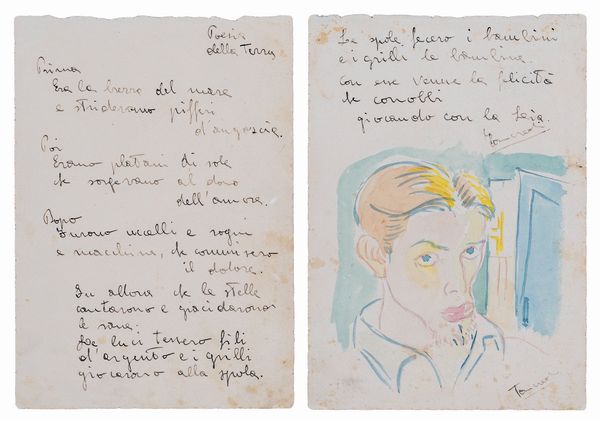 Poesia
della Terra
Prima
Era la brezza del mare
e stridevano pifferi
d'angoscia.
Poi
Erano platani di sole
che sorgevano al dono
dell'amore.
Dopo
Furono uccelli e sogni
e macchine, che cominsero
il dolore.
Fu allora che le stelle
cantarono e gracidarono
le rane;
Le luci tessero fili
d'argento e i grilli
giocarono alla spola.
La spola fecero i bambini
e i grilli le bambine.
con esse venne la felicità
che conobbi
giocando con la
Tancredi
Tancredi